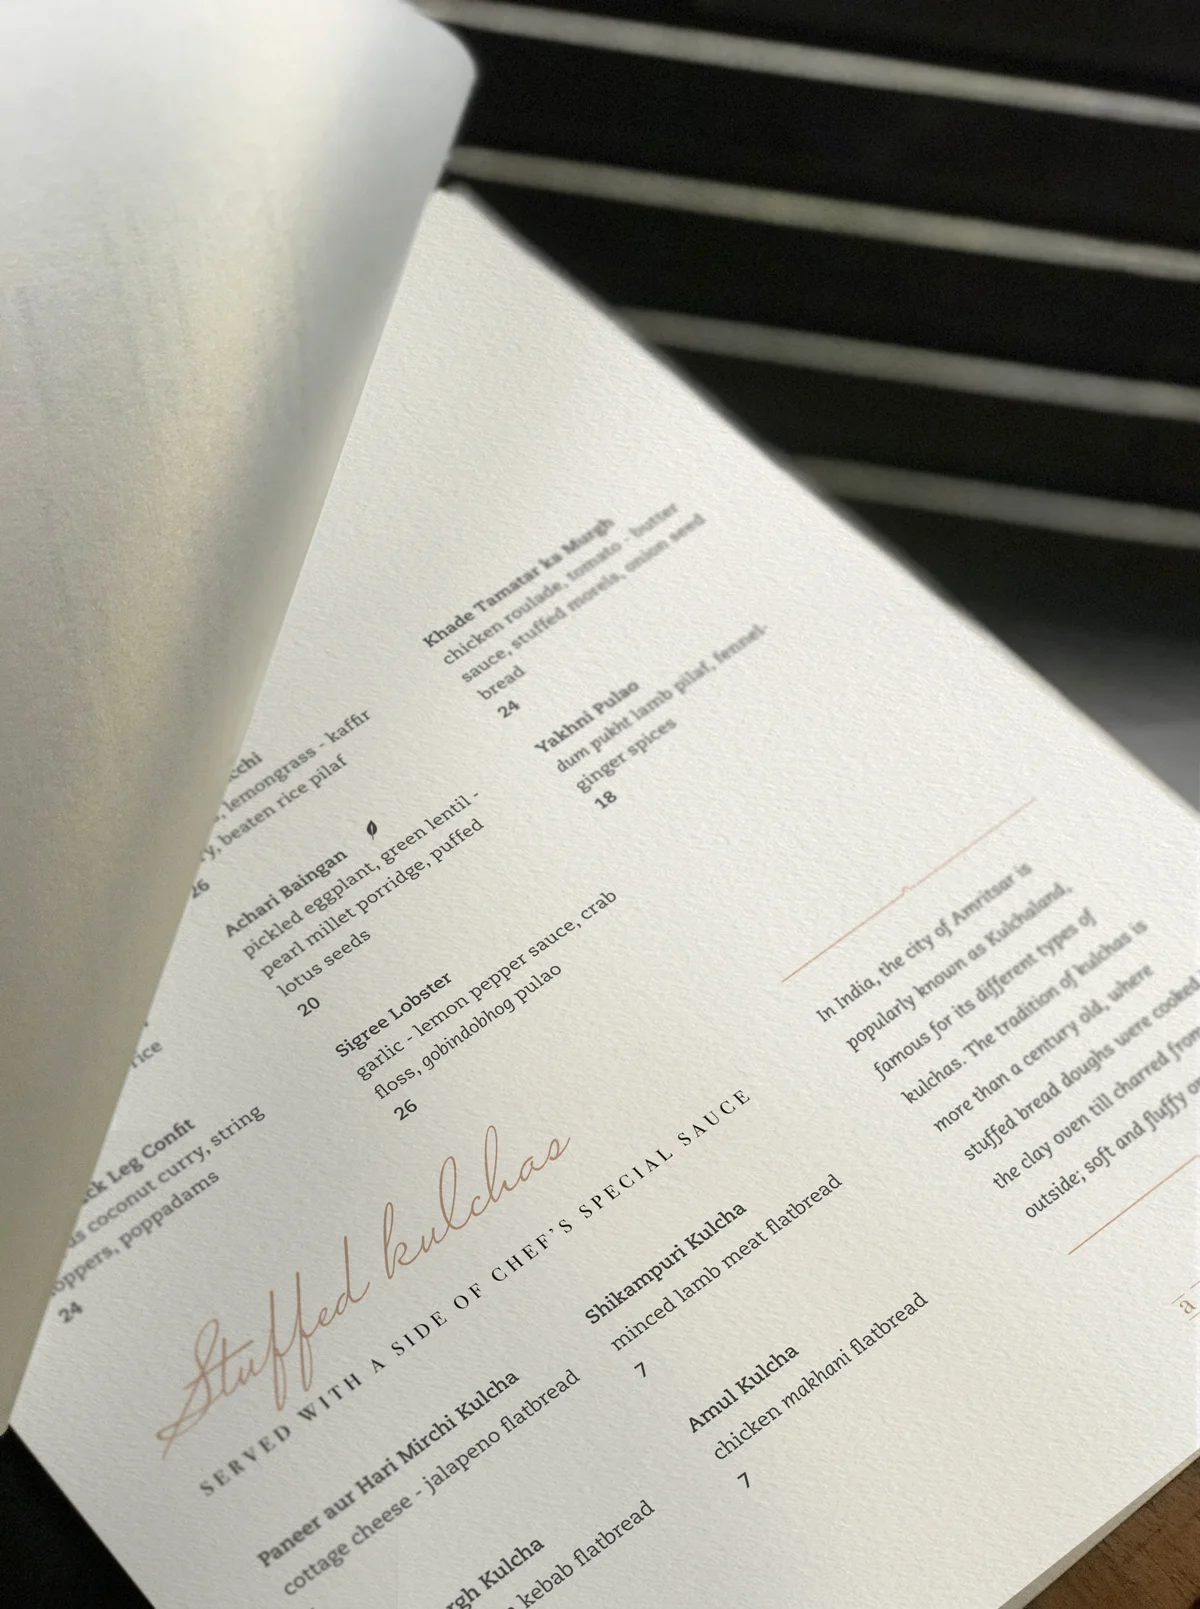 Khade Tamatar ka Murgh
chicken roulade, tomato - butter
sauce, stuffed morels, onion seed
bread
24
Yakhni Pulao
dum pukht lamb pilaf, fennel-
ginger spices
18
lemongrass - kaffir
beaten rice pilaf
26
Achari Baingan
pickled eggplant, green lentil -
pearl millet porridge, puffed
lotus seeds
20
Sigree Lobster
garlic - lemon pepper sauce, crab
floss, gobindobhog pulao
26
rice
Leg Confit
coconut curry, string
poppadams
24
Stuffed kulchas
SERVED WITH A SIDE OF CHEF'S SPECIAL SAUCE
Paneer aur Hari Mirchi Kulcha
cottage cheese - jalapeno flatbread
Kulcha
kebab flatbread
Shikampuri Kulcha
minced lamb meat flatbread
7
Amul Kulcha
chicken makhani flatbread
7
In India, the city of Amritsar is
popularly known as Kulchaland,
famous for its different types of
kulchas. The tradition of kulchas is
more than a century old, where
stuffed bread doughs were cooked
the clay oven till charred from
outside; soft and fluffy
a